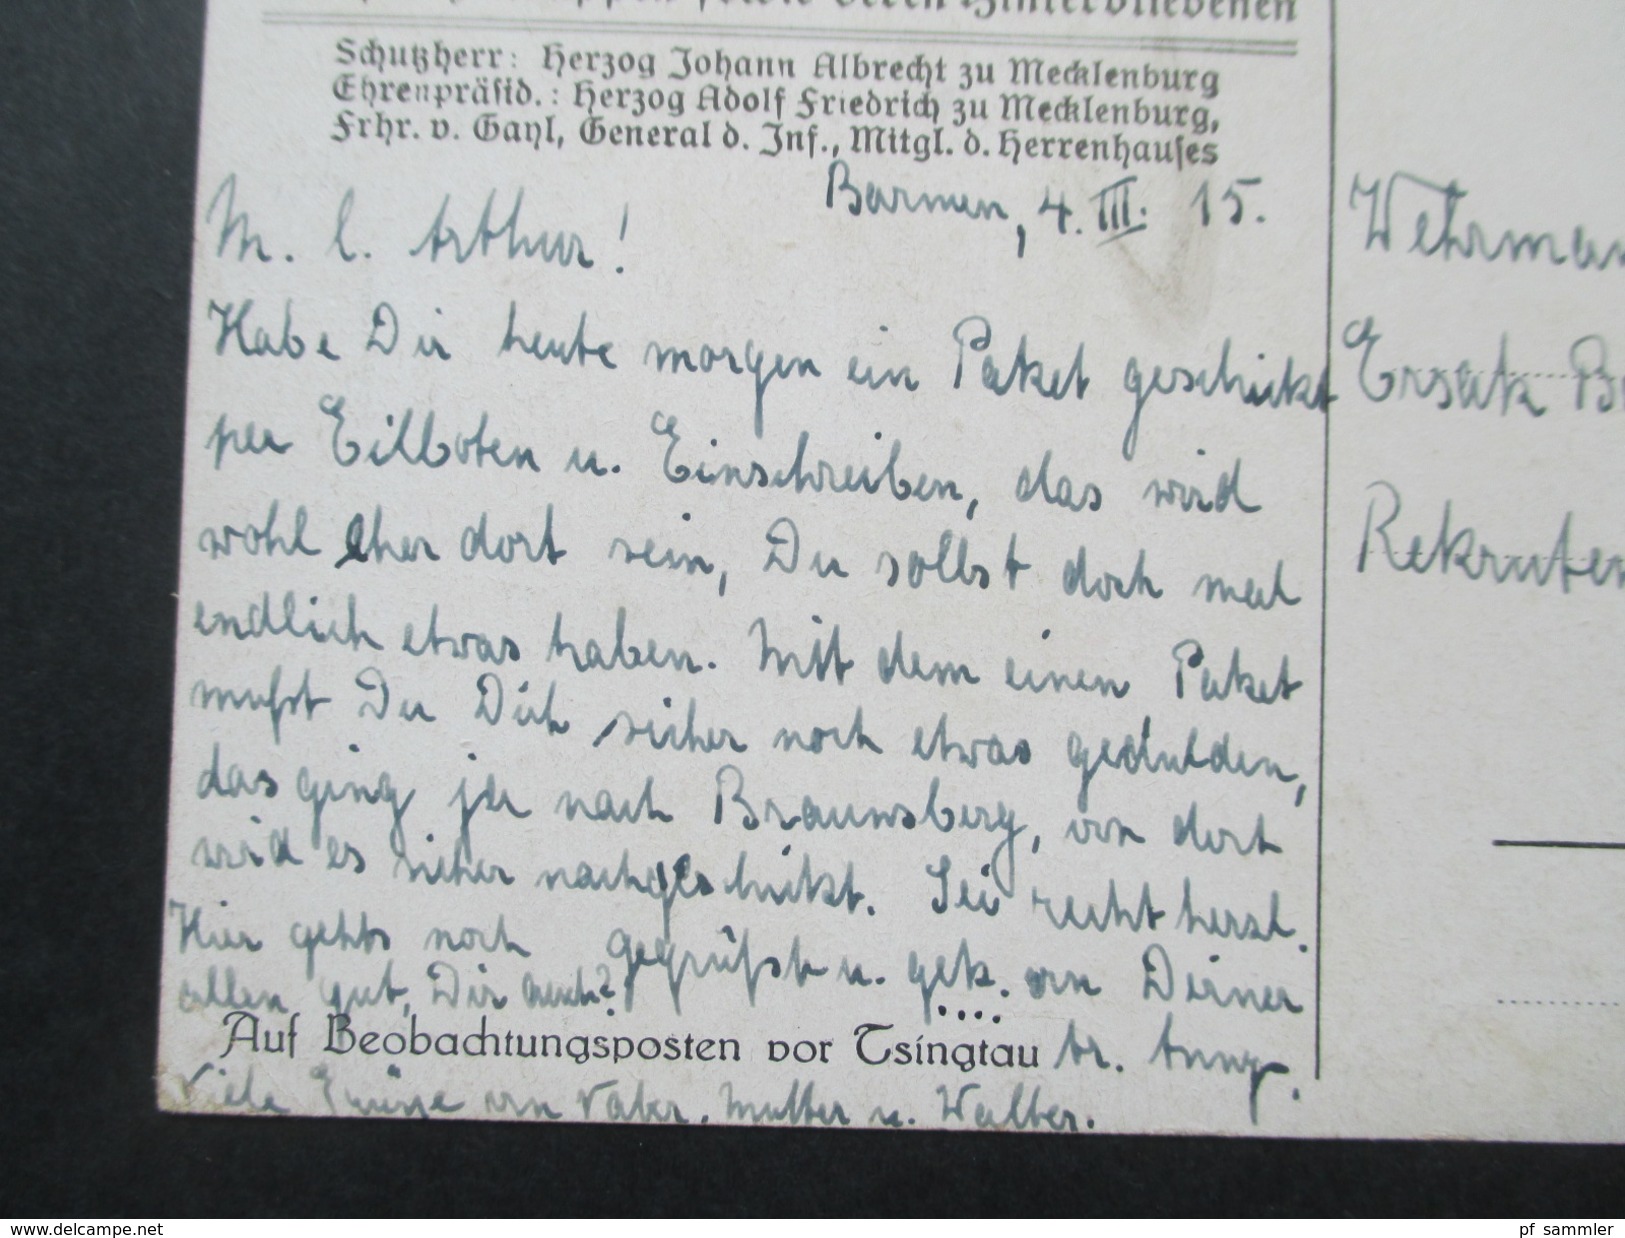 Hinterbliebenen
Schutzherr: Herzog Johann Albrecht zu Mecklenburg
Ehrenpräsid.: Herzog Adolf Friedrich zu Mecklenburg,
Frhr. v. Gayl, General d. Inf., Mitgl. d. Herrenhauses
Barmen, 4. III. 15.
M. l. Arthur!
Habe Dir heute morgen ein Paket geschickt
per Eilboten u. Einschreiben, das wird
wohl eher dort sein, Du sollst doch mal
endlich etwas haben. Mit dem einen Paket
mußt Du Dich sicher noch etwas gedulden,
das ging ja nach Braunsberg, von dort
wird es sicher nachgeschickt. Sei recht herzl.
gegrüßt u. gek. von Deiner
tr. Anny.
Hier gehts noch
allen gut, Dir auch?
Auf Beobachtungsposten vor Tsingtau
Viele Grüße von Vater, Mutter u. Walter.
Wehrman
Ersatz B
Rekruten
www.delcampe.net
pf_sammler